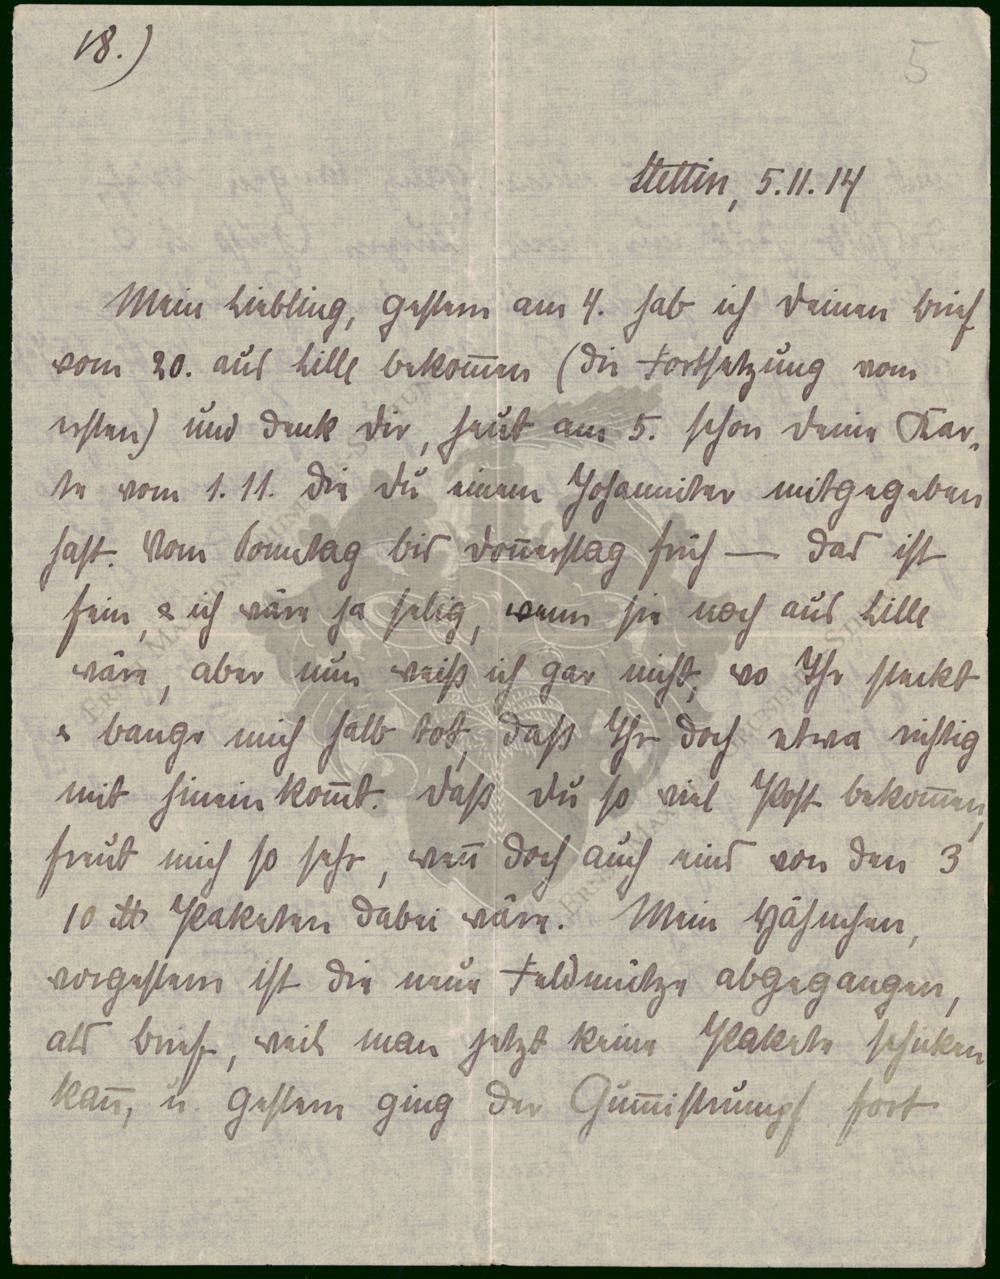 18.)
5
Stettin, 5.11.14
Mein Liebling, gestern am 4. hab ich Deinen Brief
vom 20. aus Lille bekom̅en (die Fortsetzung vom
ersten) und denk Dir, heut am 5. schon Deine Kar-
te vom 1.11. die Du einem Johanniter mitgegeben
hast. Vom Sonntag bis Don̅erstag früh — das ist
fein, & ich wäre ja selig, wenn sie noch aus Lille
wäre, aber nun weiß ich gar nicht, wo Ihr steckt
& bange mich halb tot, daß Ihr doch etwa richtig
mit hinein kom̅t. Daß Du so viel Post bekom̅en,
freut mich so sehr, wen̅ doch auch eins von den 3
10 ℔ Paketen dabei wäre. Mein Hähnchen,
vorgestern ist die neue Feldmütze abgegangen,
als Brief, weil man jetzt keine Pakete schicken
kan̅, u. gestern ging der Gum̅istrumpf fort